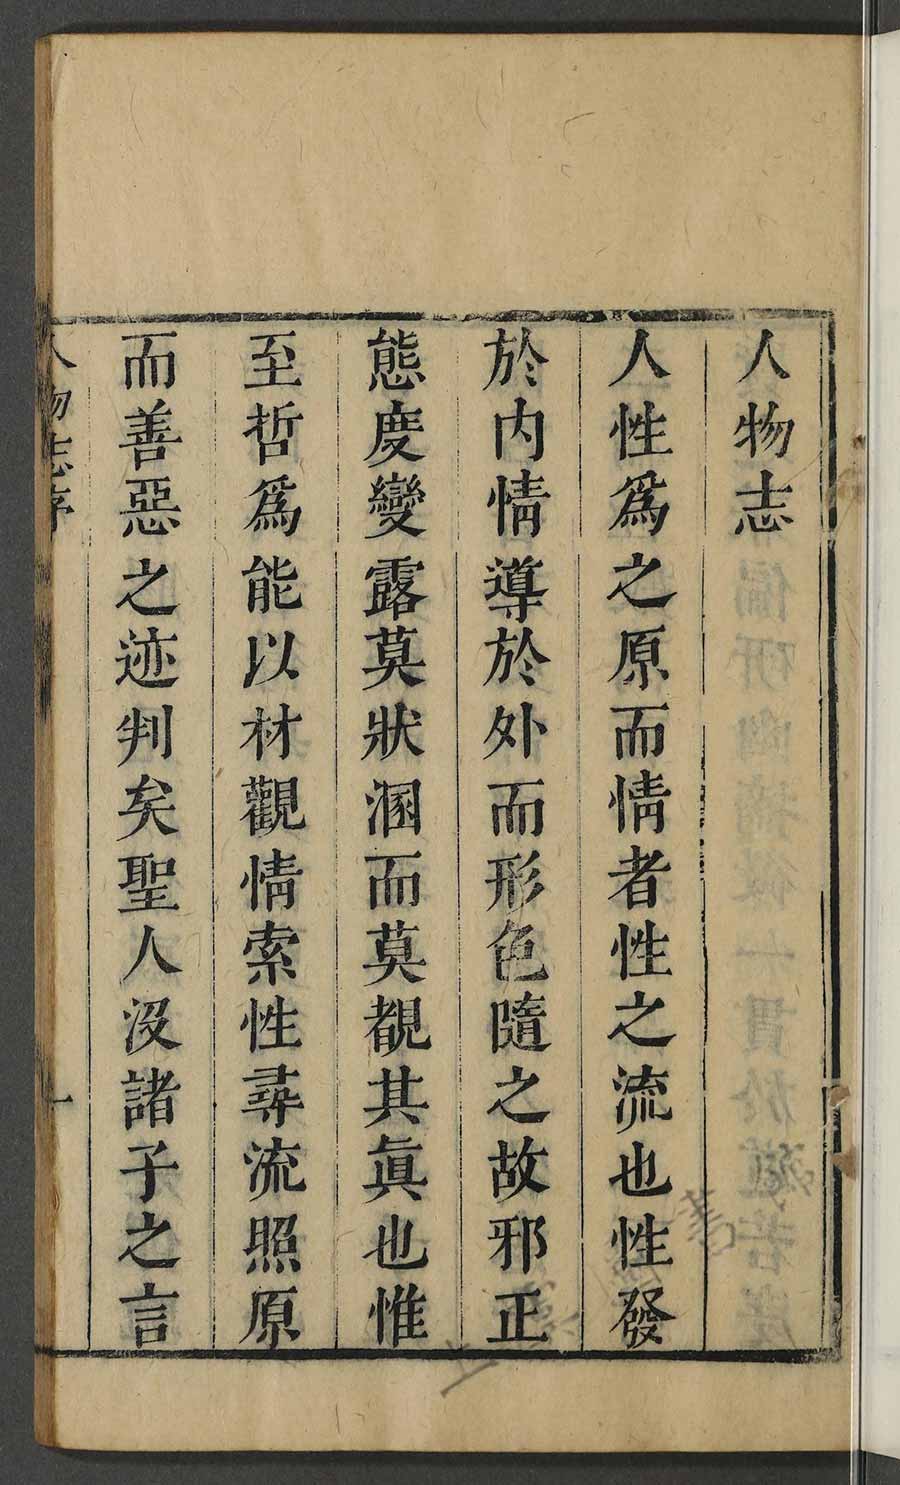 人物志
人性爲之原而情者性之流也性發
於内情導於外而形色隨之故邪正
態度變露莫狀溷而莫覩其眞也惟
至哲爲能以材觀情索性尋流照原
而善惡之迹判矣聖人沒諸子之言
人物志序
一